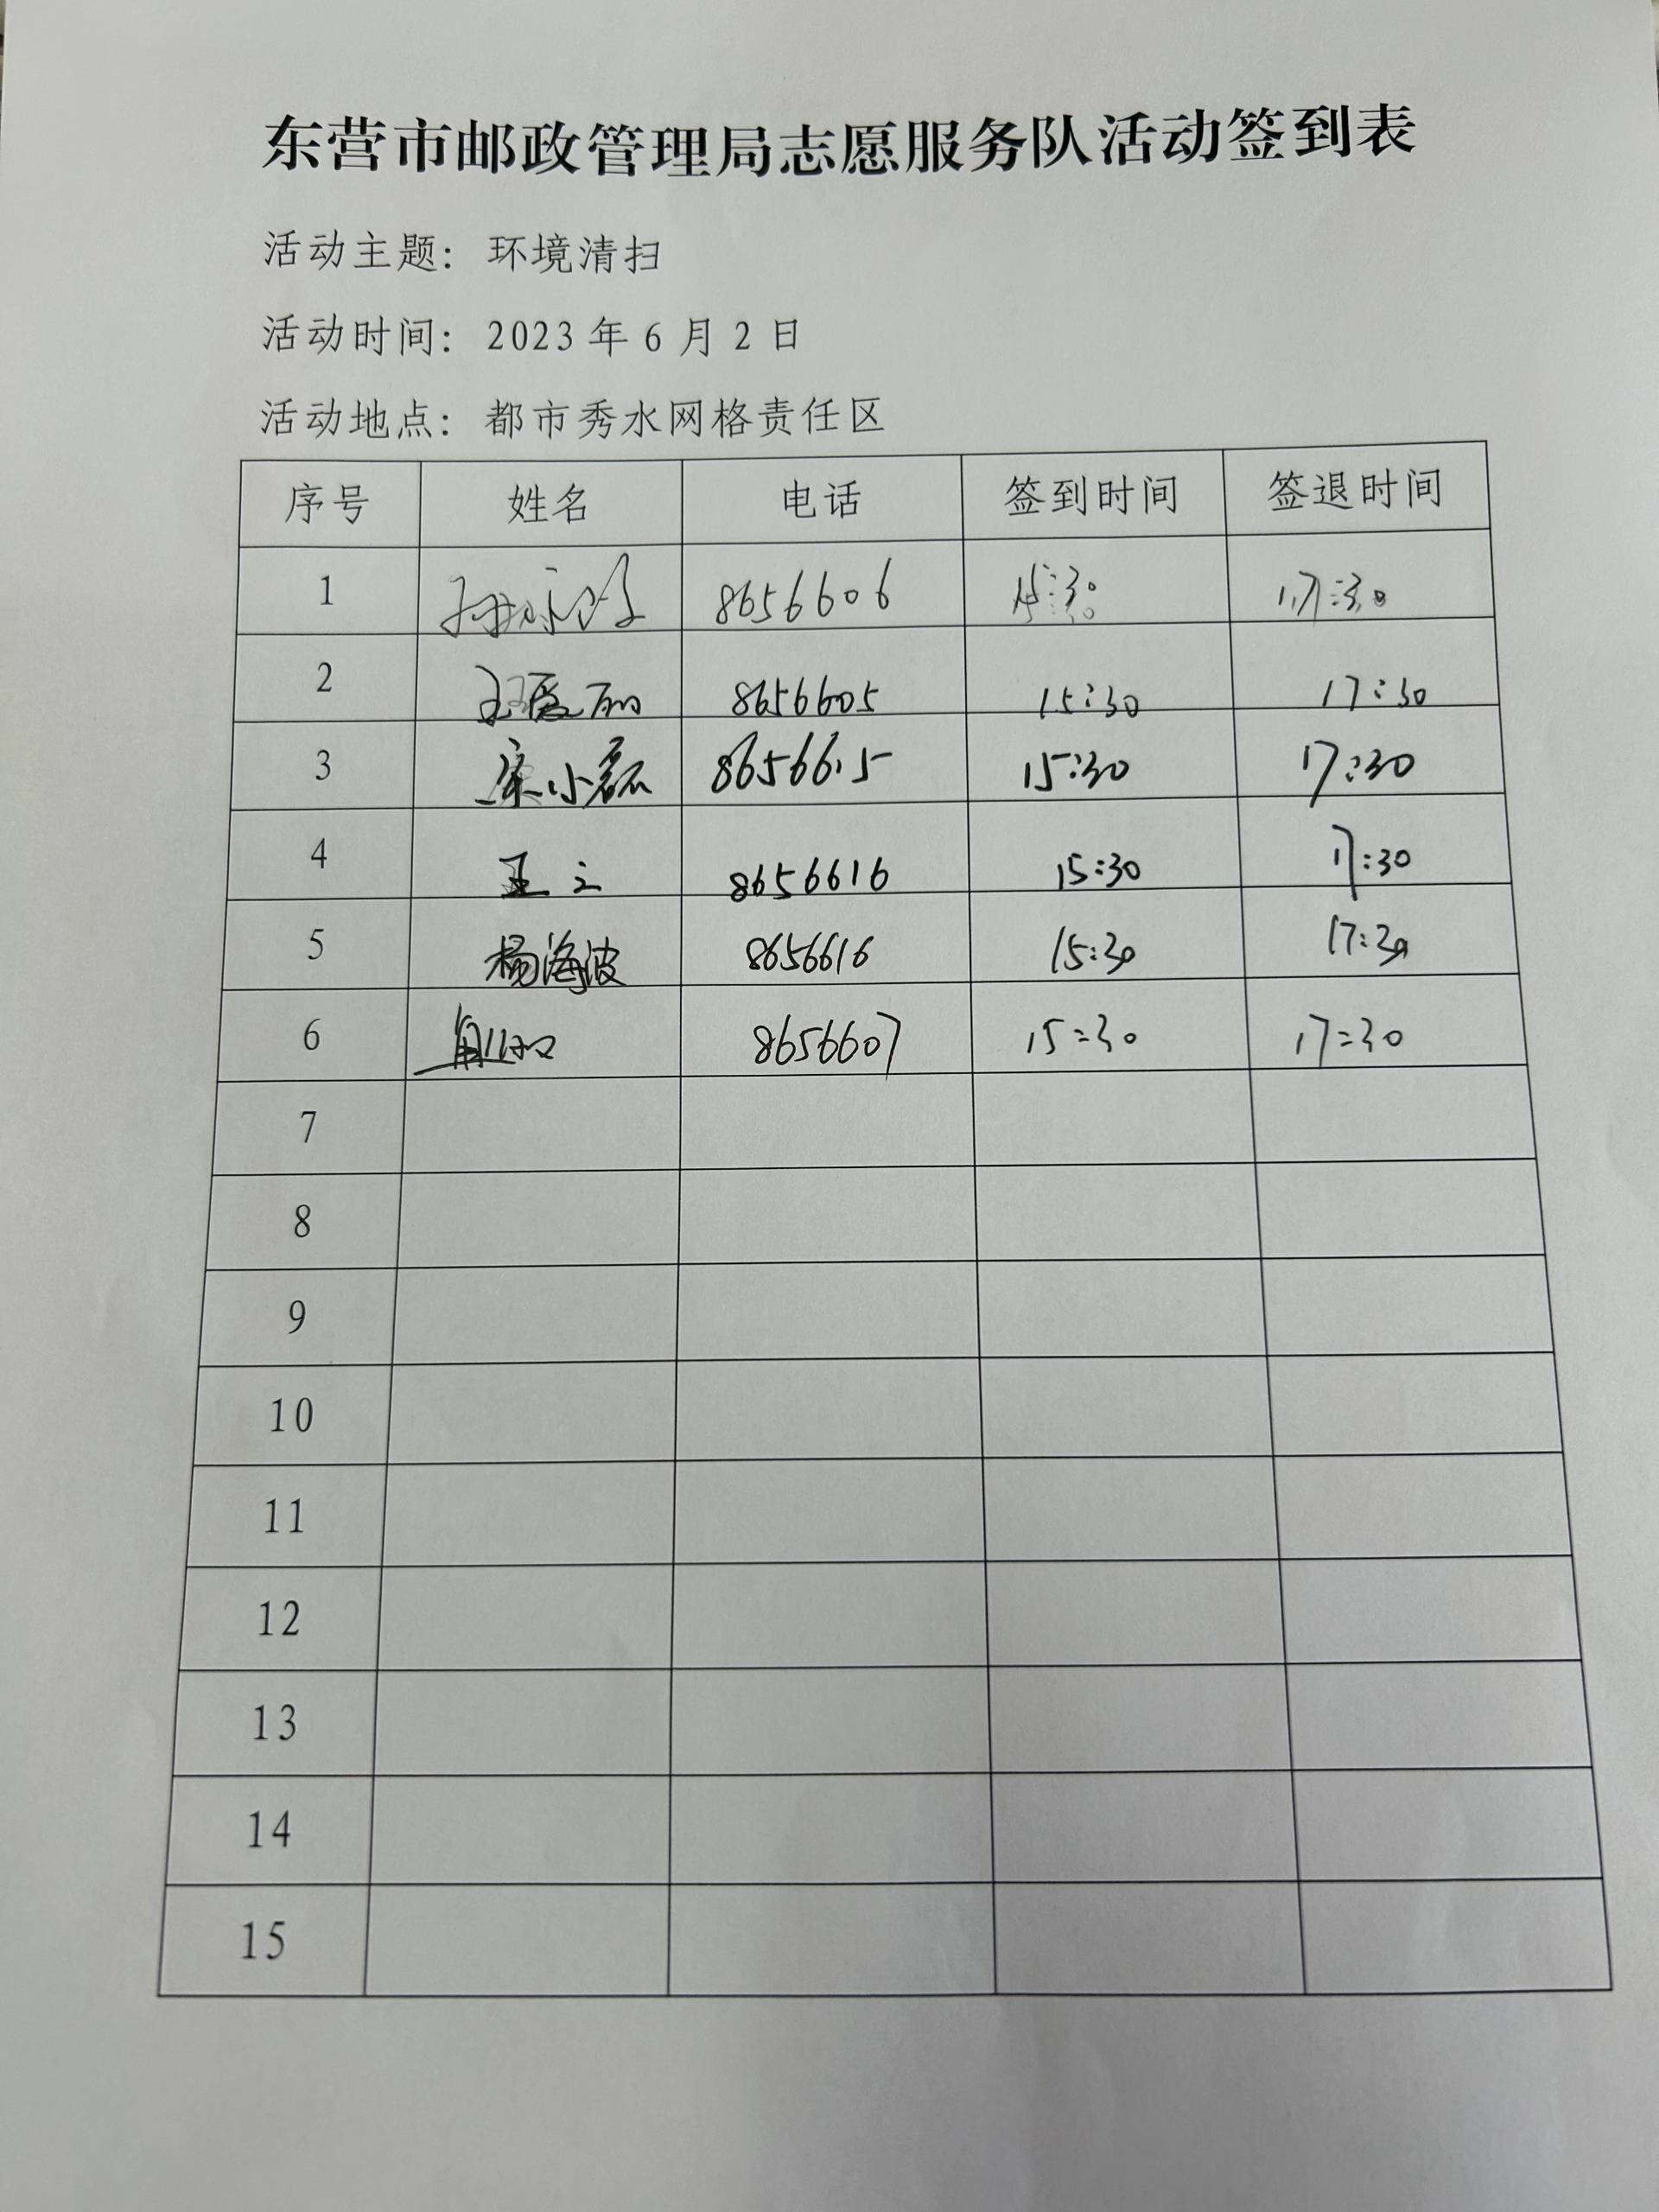 东营市邮政管理局志愿服务队活动签到表
活动主题：环境清扫
活动时间：2023年6月2日
活动地点：都市秀水网格责任区
序号 姓名 电话 签到时间 签退时间
1 8656606 15:30 17:30
2 8656605 15:30 17:30
3 宋小磊 8656615 15:30 17:30
4 王 8656616 15:30 17:30
5 杨海波 8656616 15:30 17:30
6 8656607 15:30 17:30
7
8
9
10
11
12
13
14
15